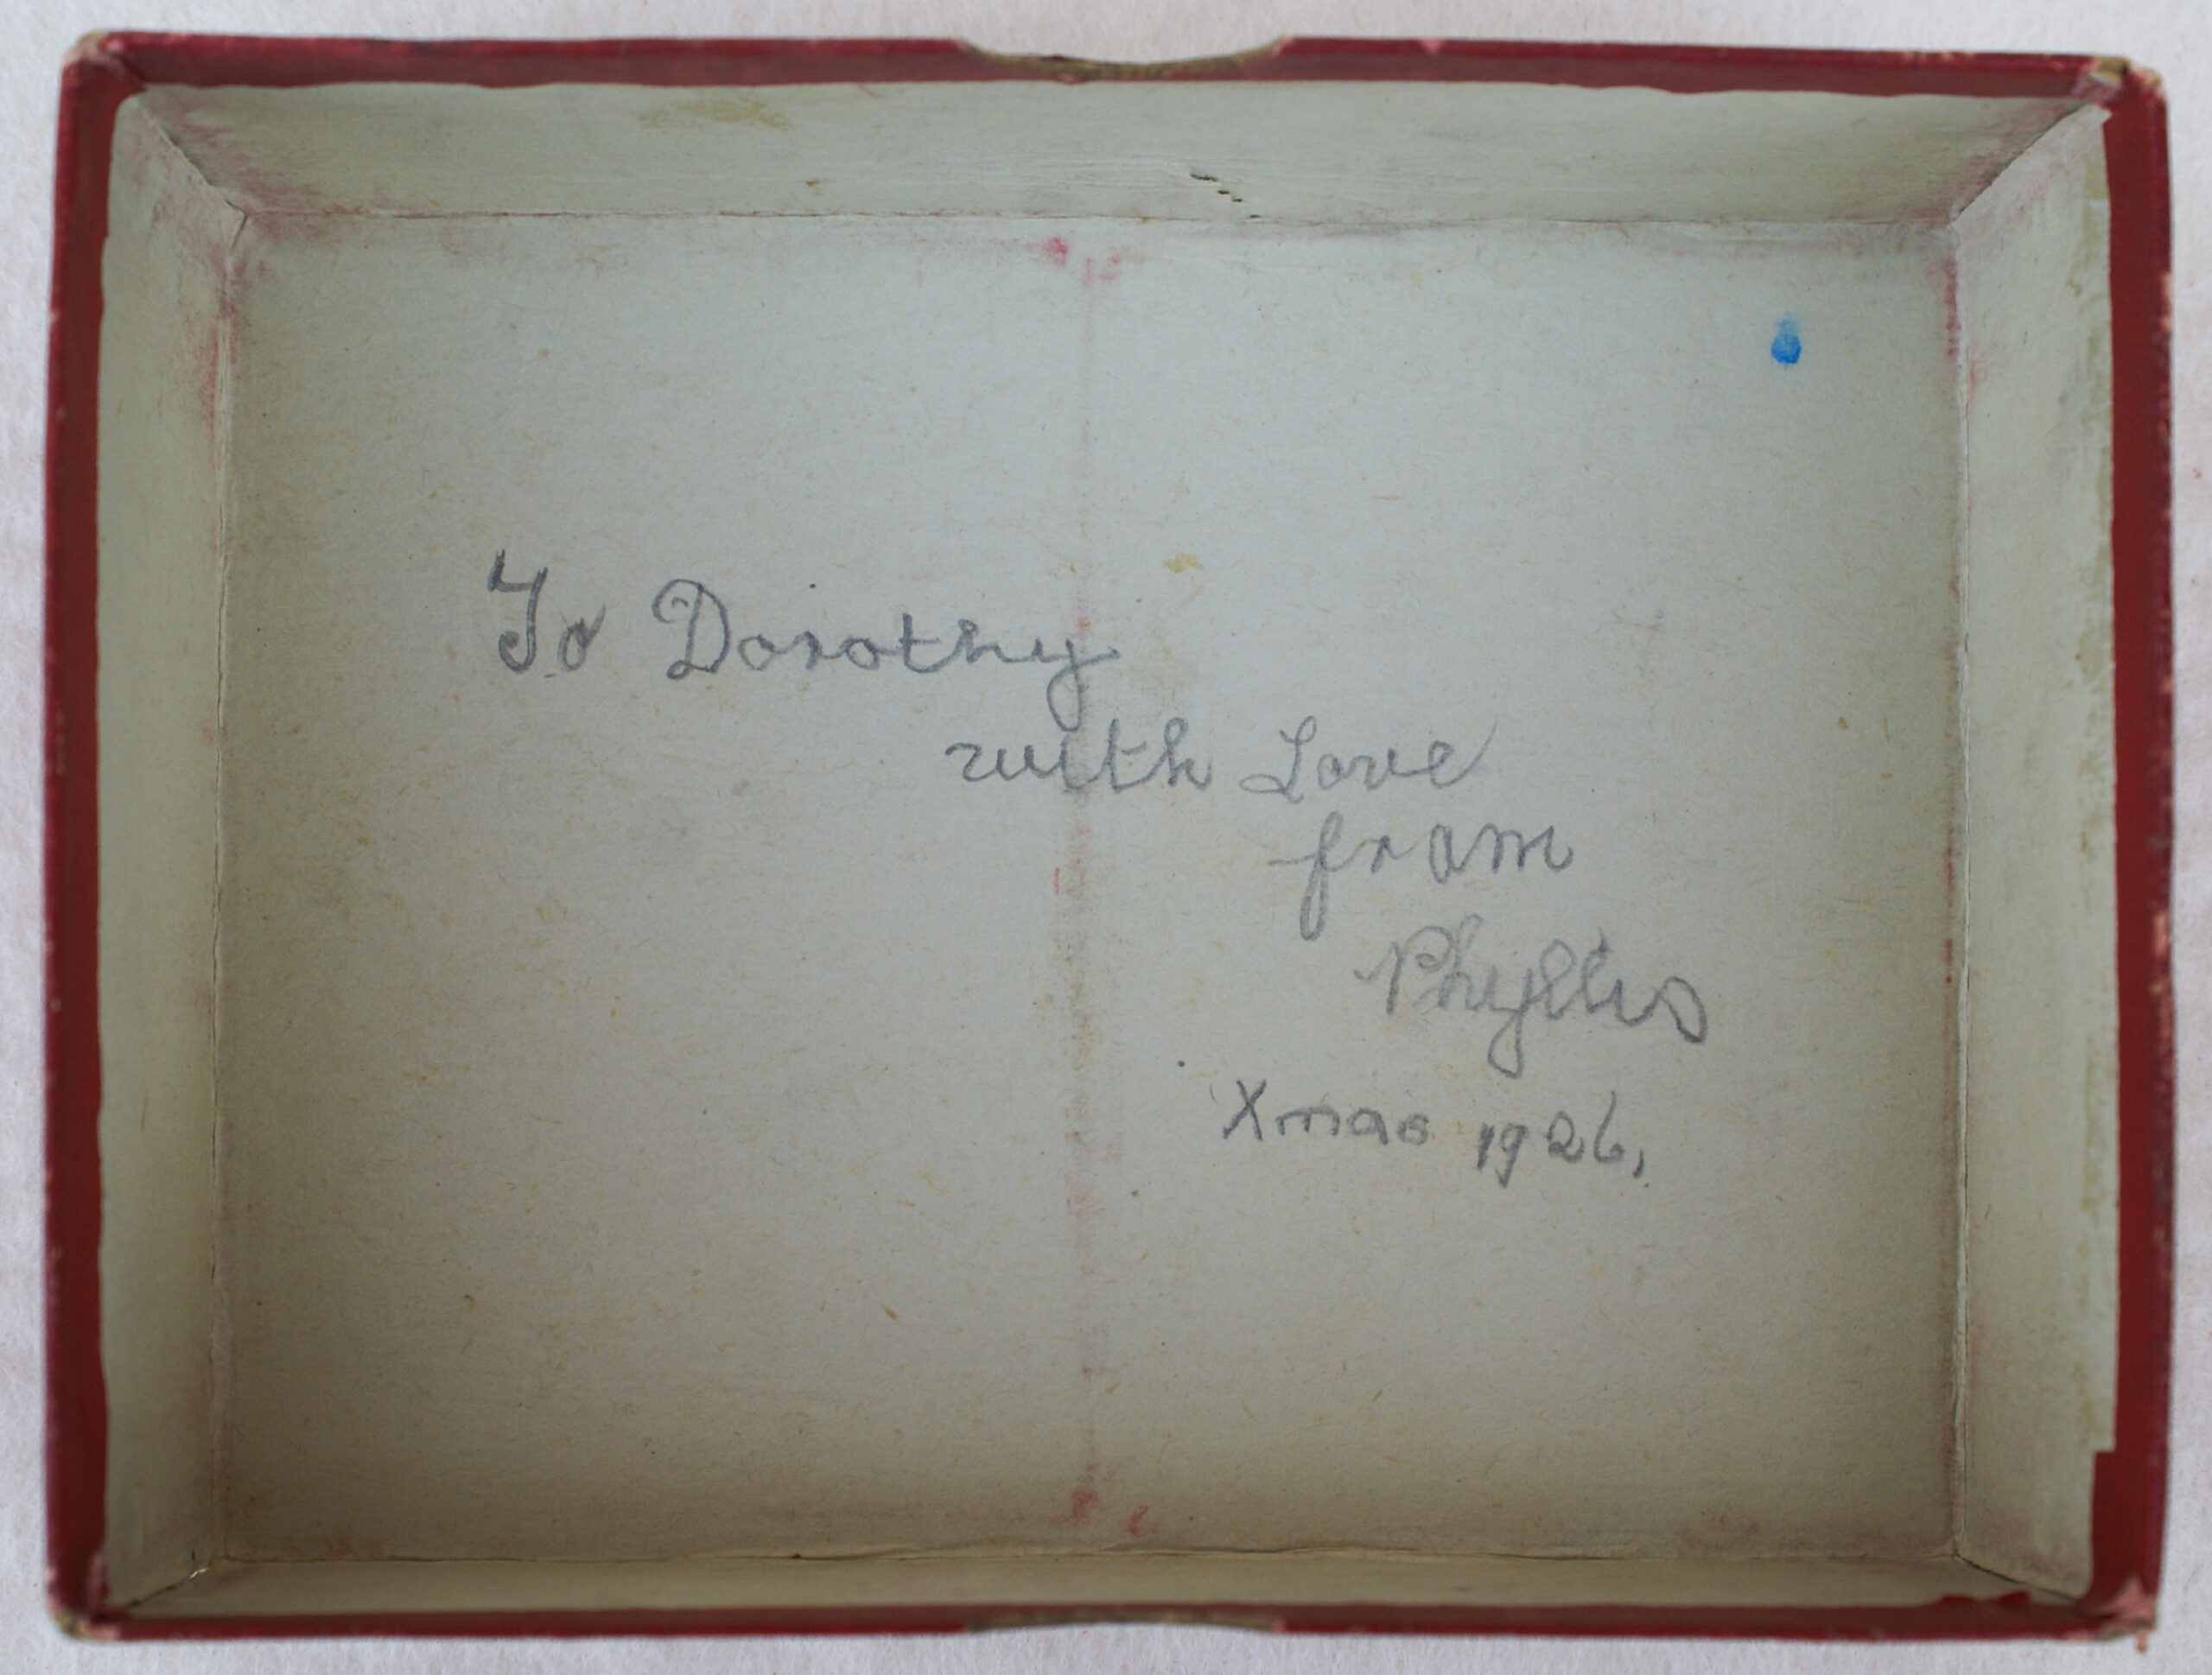 To Dorothy
with Love
from
Phyllis
Xmas 1926,